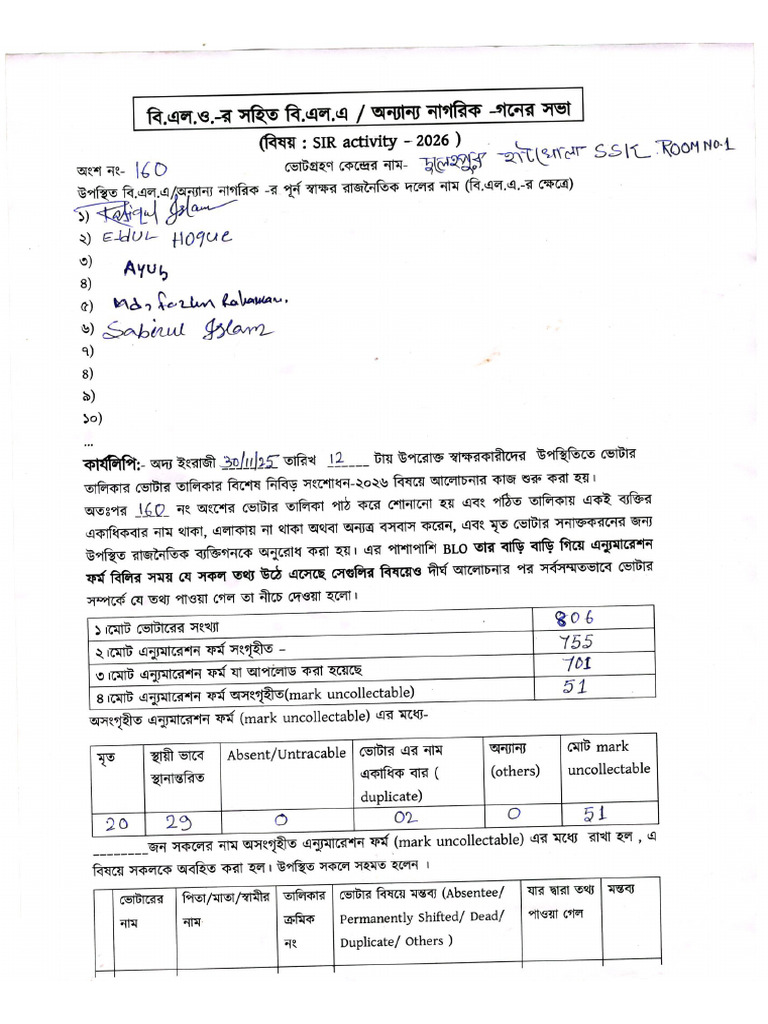 বি.এল.ও.-র সহিত বি.এল.এ / অন্যান্য নাগরিক -গনের সভা
(বিষয় : SIR activity - 2026 )
অংশ নং- 160 ভোটগ্রহণ কেন্দ্রের নাম- হাটখোলা SSK ROOM NO-1
উপস্থিত বি.এল.এ/অন্যান্য নাগরিক -র পূর্ন স্বাক্ষর রাজনৈতিক দলের নাম (বি.এল.এ.-র ক্ষেত্রে)
১) Rafiqul Islam
২) Edul Hoque
৩)
Ayub
৪)
৫) Md. Rahaman.
৬) Sabirul Islam
৭)
৪)
৯)
১০)
...
কার্যলিপি:- অদ্য ইংরাজী 30/11/25 তারিখ 12 টায় উপরোক্ত স্বাক্ষরকারীদের উপস্থিতিতে ভোটার
তালিকার ভোটার তালিকার বিশেষ নিবিড় সংশোধন-২০২৬ বিষয়ে আলোচনার কাজ শুরু করা হয়।
অতঃপর 160 নং অংশের ভোটার তালিকা পাঠ করে শোনানো হয় এবং পঠিত তালিকায় একই ব্যক্তির
একাধিকবার নাম থাকা, এলাকায় না থাকা অথবা অন্যত্র বসবাস করেন, এবং মৃত ভোটার সনাক্তকরনের জন্য
উপস্থিত রাজনৈতিক ব্যক্তিগনকে অনুরোধ করা হয়। এর পাশাপাশি BLO তার বাড়ি বাড়ি গিয়ে এন্যুমারেশন
ফর্ম বিলির সময় যে সকল তথ্য উঠে এসেছে সেগুলির বিষয়েও দীর্ঘ আলোচনার পর সর্বসম্মতভাবে ভোটার
সম্পর্কে যে তথ্য পাওয়া গেল তা নীচে দেওয়া হলো।
১।মোট ভোটারের সংখ্যা 806
২।মোট এন্যুমারেশন ফর্ম সংগৃহীত - 755
৩।মোট এন্যুমারেশন ফর্ম যা আপলোড করা হয়েছে 701
৪।মোট এন্যুমারেশন ফর্ম অসংগৃহীত(mark uncollectable) 51
অসংগৃহীত এন্যুমারেশন ফর্ম (mark uncollectable) এর মধ্যে-
মৃত স্থায়ী ভাবে Absent/Untracable ভোটার এর নাম অন্যান্য মোট mark
স্থানান্তরিত একাধিক বার ( (others) uncollectable
duplicate)
20 29 0 02 0 51
________জন সকলের নাম অসংগৃহীত এন্যুমারেশন ফর্ম (mark uncollectable) এর মধ্যে রাখা হল , এ
বিষয়ে সকলকে অবহিত করা হল। উপস্থিত সকলে সহমত হলেন ।
ভোটারের পিতা/মাতা/স্বামীর তালিকার ভোটার বিষয়ে মন্তব্য (Absentee/ যার দ্বারা তথ্য মন্তব্য
নাম নাম ক্রমিক Permanently Shifted/ Dead/ পাওয়া গেল
নং Duplicate/ Others )